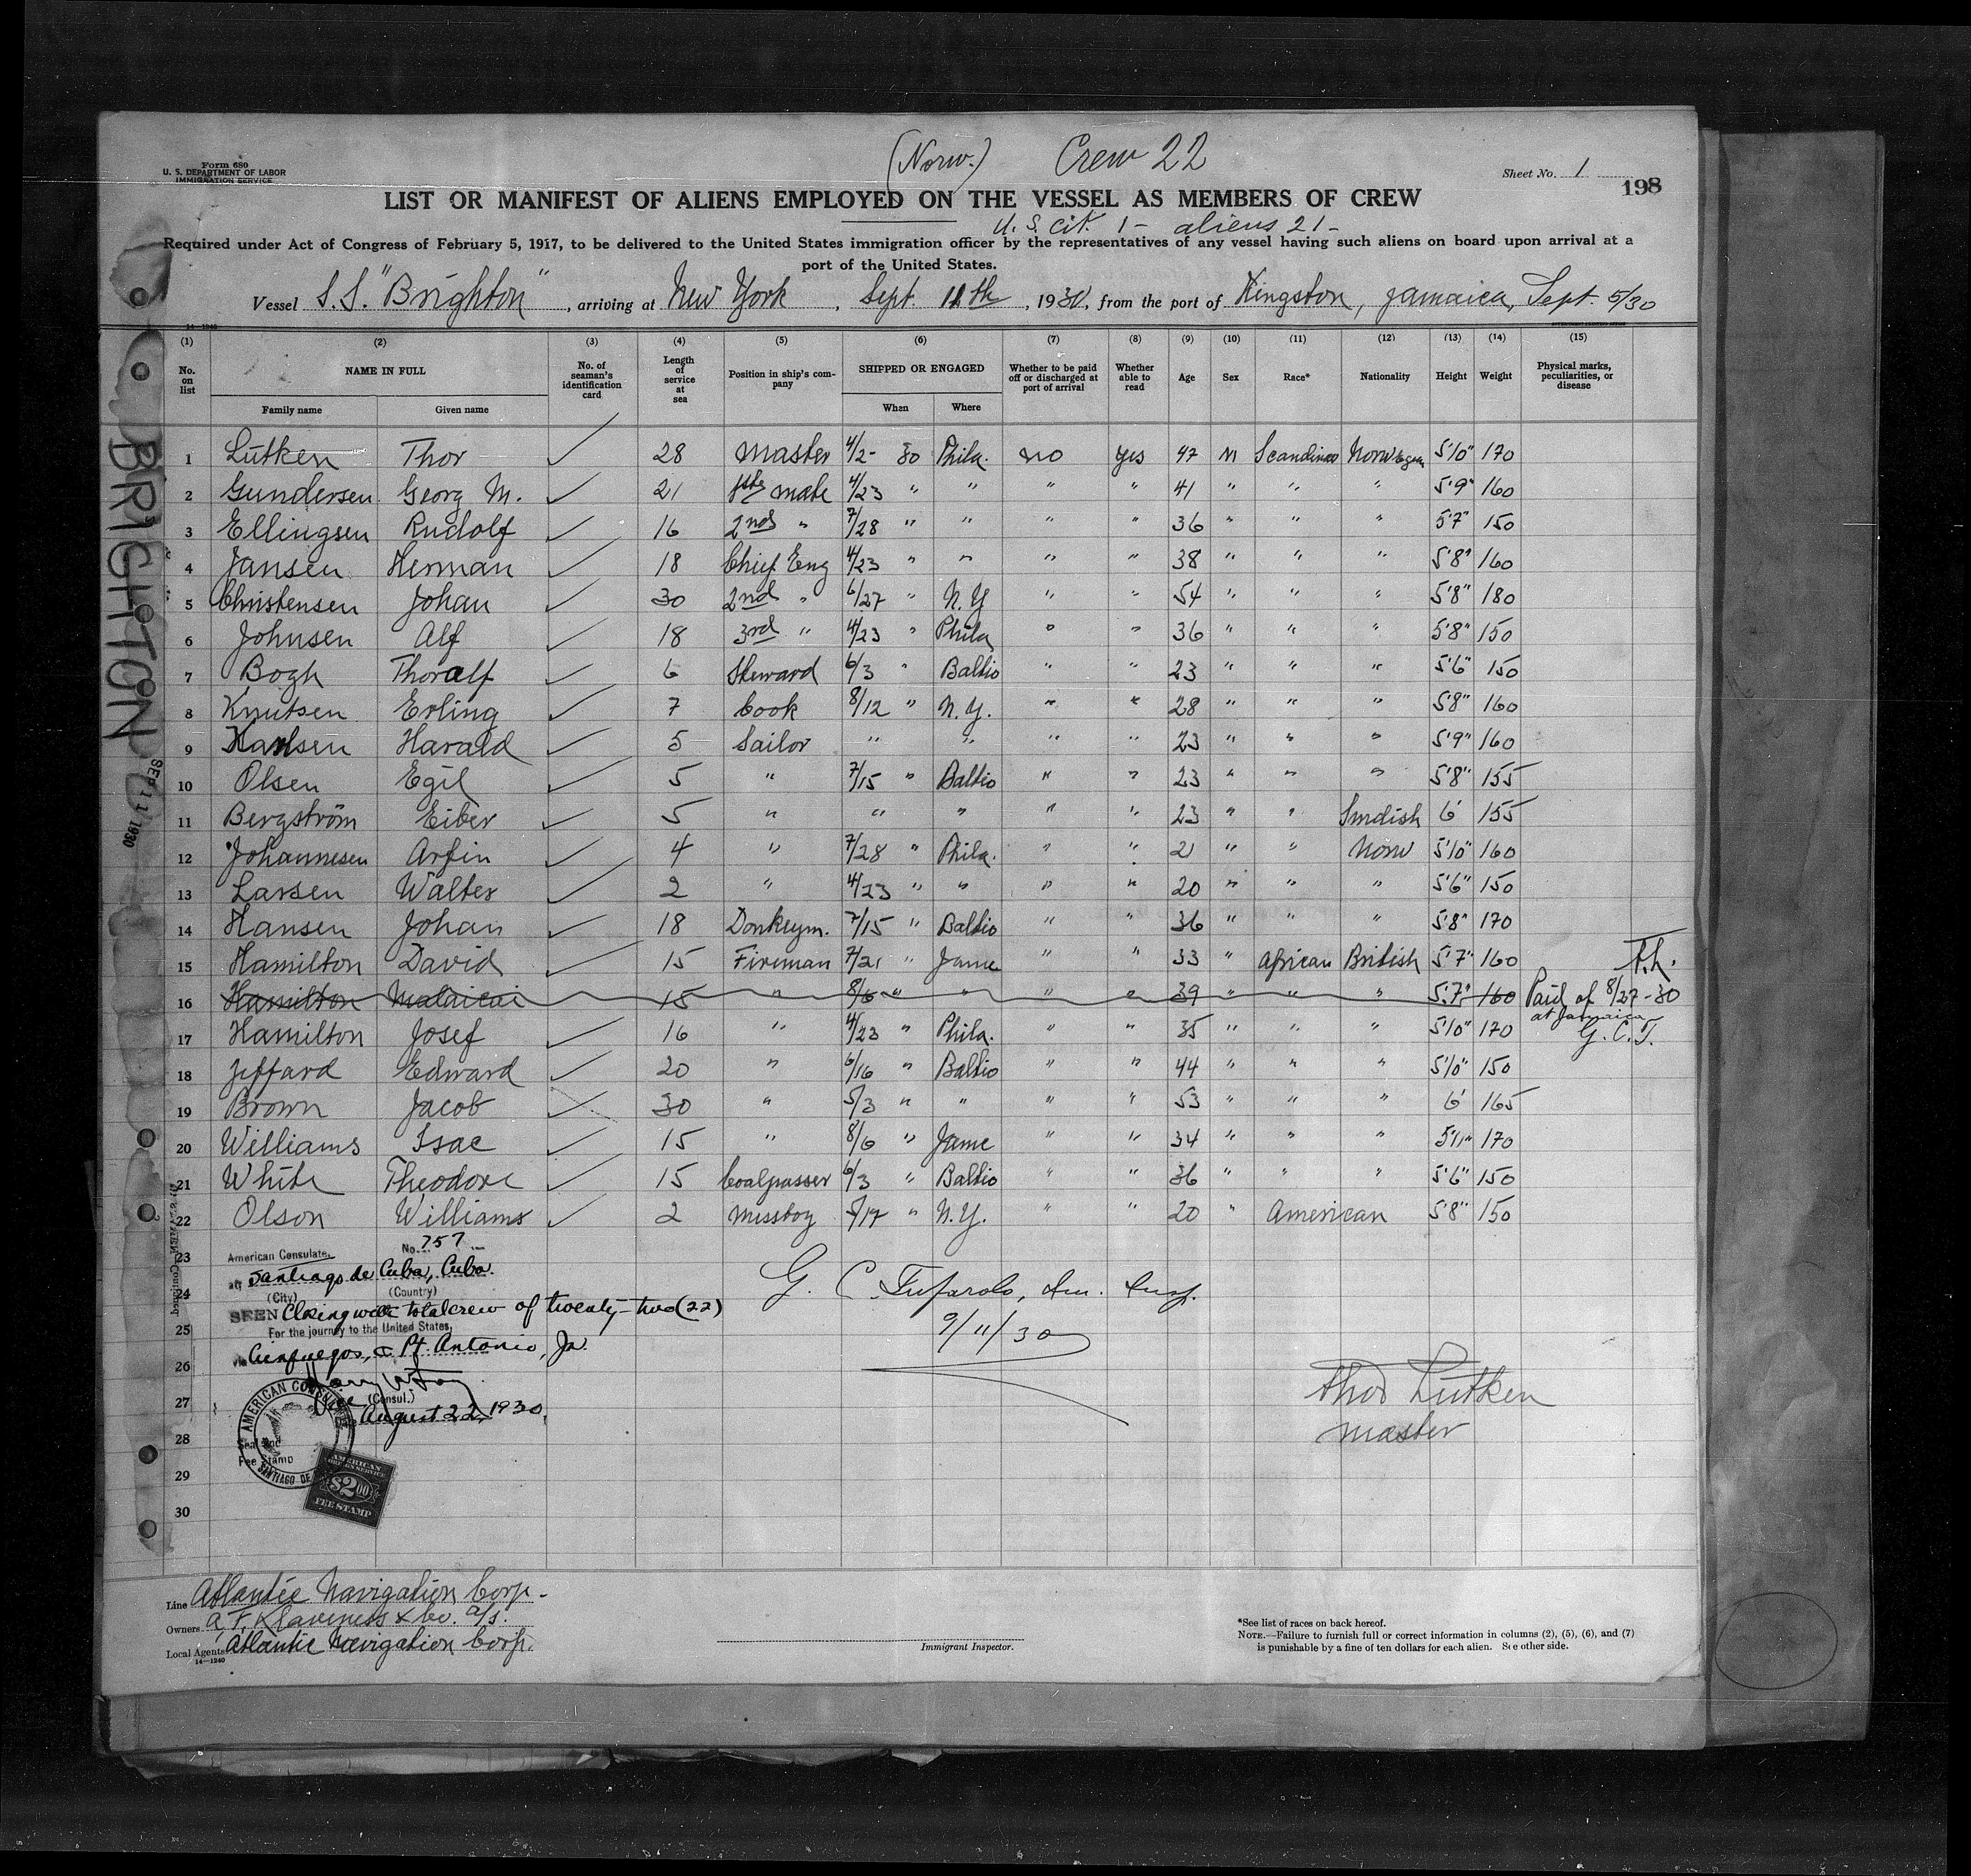 Form 680
U. S. DEPARTMENT OF LABOR
IMMIGRATION SERVICE
(Norw.) Crew 22
Sheet No. 1
198
LIST OR MANIFEST OF ALIENS EMPLOYED ON THE VESSEL AS MEMBERS OF CREW
U. S. Cit. 1 - aliens 21 -
Required under Act of Congress of February 5, 1917, to be delivered to the United States immigration officer by the representatives of any vessel having such aliens on board upon arrival at a
port of the United States.
Vessel S.S. "Brighton", arriving at New York, Sept. 11th, 1930, from the port of Kingston, Jamaica, Sept. 5/30
14-1240
(1) (2) (3) (4) (5) (6) (7) (8) (9) (10) (11) (12) (13) (14) (15)
No. on list NAME IN FULL No. of seaman's identification card Length of service at sea Position in ship's company SHIPPED OR ENGAGED Whether to be paid off or discharged at port of arrival Whether able to read Age Sex Race* Nationality Height Weight Physical marks, peculiarities, or disease
Family name Given name When Where
1 Lütken Thor ✓ 28 Master 4/2- 30 Phila. no yes 47 M Scandinav Norwegian 5'10" 170
2 Gundersen Georg M. ✓ 21 1ste mate 4/23 " " " " 41 " " " 5'9" 160
3 Ellingsen Rudolf ✓ 16 2nd " 7/28 " " " " 36 " " " 5'7" 150
4 Jansen Herman ✓ 18 Chief Eng 4/23 " " " " 38 " " " 5'8" 160
5 Christensen Johan ✓ 30 2nd " 6/27 " N.Y " " 54 " " " 5'8" 180
6 Johnsen Alf ✓ 18 3rd " 4/23 " Phila " " 36 " " " 5'8" 150
7 Bogh Thoralf ✓ 6 Steward 6/3 " Baltio " " 23 " " " 5'6" 150
8 Knutsen Erling ✓ 7 Cook 8/12 " N.Y. " " 28 " " " 5'8" 160
9 Karlsen Harald ✓ 5 Sailor " " " " 23 " " " 5'9" 160
10 Olsen Egil ✓ 5 " 7/15 " Baltio " " 23 " " " 5'8" 155
11 Bergström Eiber ✓ 5 " " " " " 23 " " Swedish 6' 155
12 Johannesen Arfin ✓ 4 " 7/28 " Phila. " " 21 " " Norw 5'10" 160
13 Larsen Walter ✓ 2 " 4/23 " " " " 20 " " " 5'6" 150
14 Hansen Johan ✓ 18 Donkeym. 7/15 " Baltio " " 36 " " " 5'8" 170
15 Hamilton David ✓ 15 Fireman 7/21 " Jame " " 33 " African British 5'7" 160 T.L.
16 Hamilton Malaicai 15 " 8/6 " " " " 39 " " " 5'7" 160 Paid of 8/27-30
at Jamaica
17 Hamilton Josef ✓ 16 " 4/23 " Phila. " " 35 " " " 5'10" 170 G.C.T.
18 Jeffard Edward ✓ 20 " 6/16 " Baltio " " 44 " " " 5'10" 150
19 Brown Jacob ✓ 30 " 5/3 " " " " 53 " " " 6' 165
20 Williams Isac ✓ 15 " 8/6 " Jame " " 34 " " " 5'11" 170
21 White Theodore ✓ 15 Coalpasser 6/3 " Baltio " " 36 " " " 5'6" 150
22 Olson Williams ✓ 2 Messboy 5/17 " N.Y. " " 20 " American 5'8" 150
23
24
25
26
27
28
29
30
American Consulate, No. 757
at Santiago de Cuba, Cuba.
(City) (Country)
SEEN Closing with total crew of twenty-two (22)
For the journey to the United States,
via Cienfuegos, & Pt. Antonio, Ja.
Vice (Consul.)
August 22, 1930.
Seal and
Fee Stamp
AMERICAN CONSULATE
SANTIAGO DE
AMERICAN
FOREIGN SERVICE
$2.00
FEE STAMP
G. C. Tufarolo, Im. Insp.
9/11/30
Thor Lütken
Master
BRIGHTON
SEP 11 1930
Line Atlantic Navigation Corp.
Owners A. F. Klaveness & Co. A/S.
Local Agents Atlantic Navigation Corp.
14-1240
Immigrant Inspector.
*See list of races on back hereof.
NOTE.—Failure to furnish full or correct information in columns (2), (5), (6), and (7)
is punishable by a fine of ten dollars for each alien. See other side.